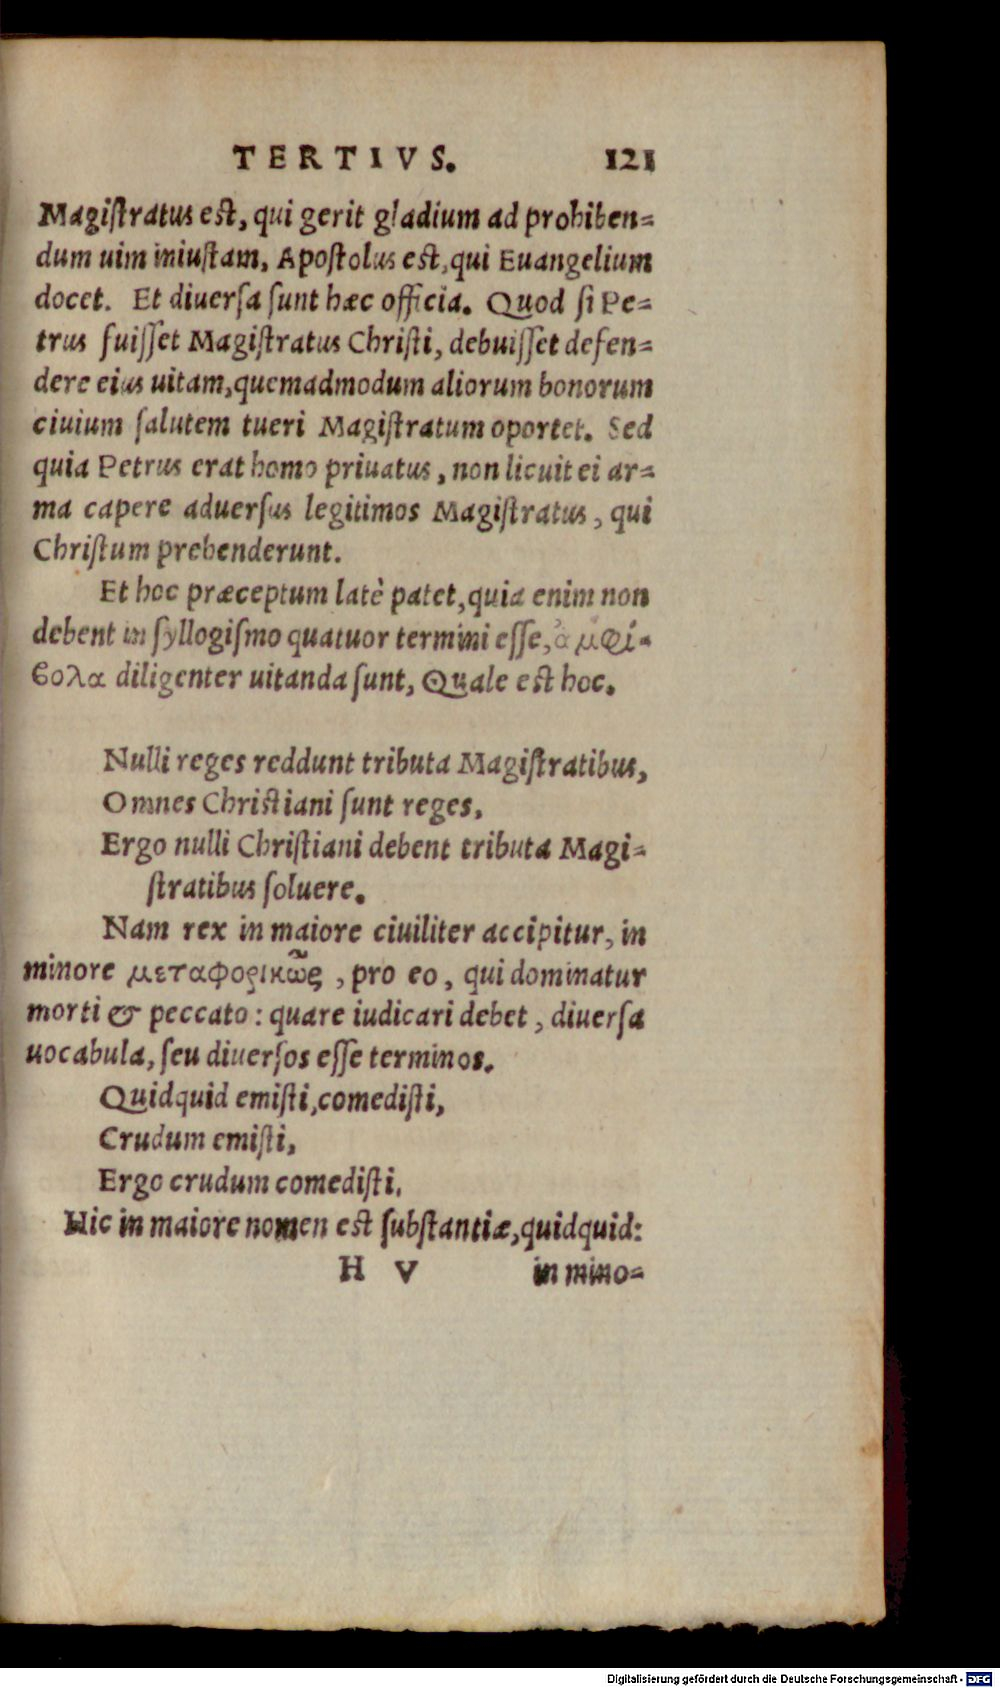 TERTIVS. 121
Magiſtratus est, qui gerit gladium ad prohiben=
dum uim iniuſtam, Apoſtolus est, qui Euangelium
docet. Et diuerſa ſunt hæc officia. Quod ſi Pe=
trus fuiſſet Magiſtratus Chriſti, debuiſſet defen=
dere eius uitam, quemadmodum aliorum bonorum
ciuium ſalutem tueri Magiſtratum oportet. Sed
quia Petrus erat homo priuatus, non licuit ei ar=
ma capere aduerſus legitimos Magiſtratus, qui
Chriſtum prehenderunt.
Et hoc præceptum latè patet, quia enim non
debent in ſyllogiſmo quatuor termini eſſe, ἀμφί-
ϐολα diligenter uitanda ſunt, Quale est hoc.
Nulli reges reddunt tributa Magiſtratibus,
Omnes Chriſtiani ſunt reges,
Ergo nulli Chriſtiani debent tributa Magi=
ſtratibus ſoluere.
Nam rex in maiore ciuiliter accipitur, in
minore μεταφορικῶς, pro eo, qui dominatur
morti & peccato: quare iudicari debet, diuerſa
uocabula, ſeu diuerſos eſſe terminos.
Quidquid emiſti, comediſti,
Crudum emiſti,
Ergo crudum comediſti.
Hic in maiore nomen est ſubſtantiæ, quidquid:
H V in mino=
Digitalisierung gefördert durch die Deutsche Forschungsgemeinschaft - DFG